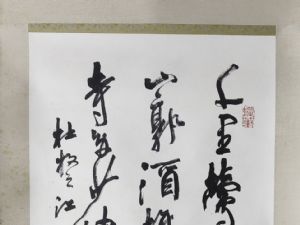 千里鶯
山郭酒旗
寺多少
杜牧之江